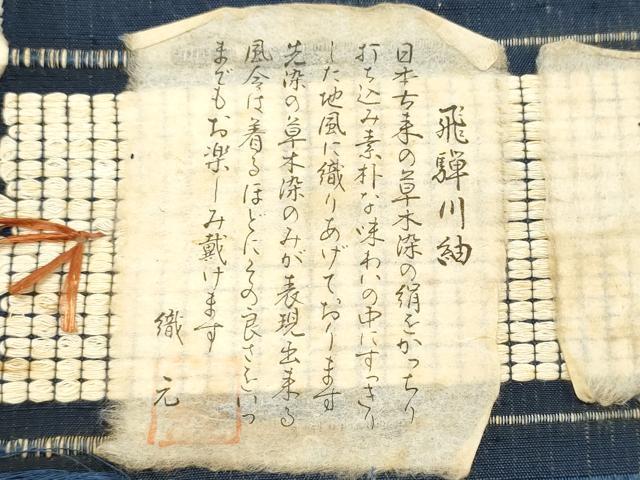 飛騨川紬
日本古来の草木染の絹をかっちり
打ち込み素朴な味わいの中にすっきり
した地風に織りあげております
先染の草木染のみが表現出来る
風合は着るほどにその良さをいつ
までもお楽しみ戴けます
織元